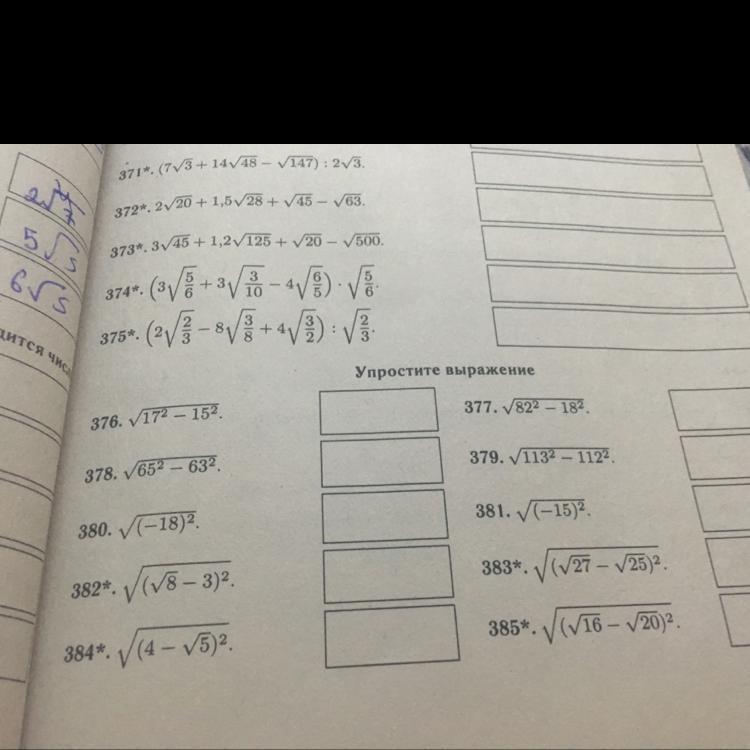 371*. (7√3 + 14√48 − √147) : 2√3.
372*. 2√20 + 1,5√28 + √45 − √63.
373*. 3√45 + 1,2√125 + √20 − √500.
374*. (3√(5/6) + 3√(3/10) − 4√(6/5)) · √(5/6).
375*. (2√(2/3) − 8√(3/8) + 4√(3/2)) : √(2/3).
5√5
6√5
дится числ
Упростите выражение
376. √(17² − 15²).
377. √(82² − 18²).
378. √(65² − 63²).
379. √(113² − 112²).
380. √((−18)²).
381. √((−15)²).
382*. √((√8 − 3)²).
383*. √((√27 − √25)²).
384*. √((4 − √5)²).
385*. √((√16 − √20)²).